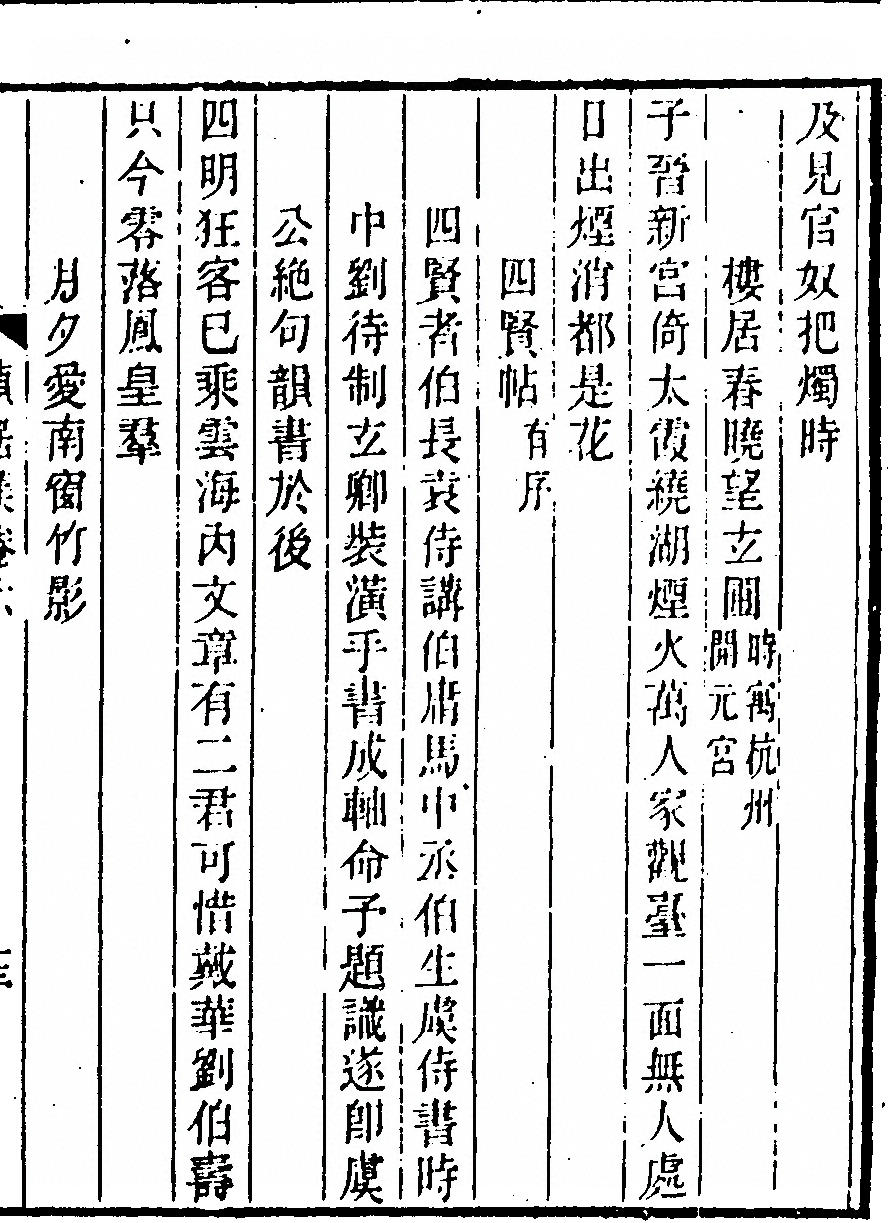 及見官奴把燭時
樓居春曉望玄圃時寓杭州開元宮
子晉新宮倚太霞繞湖煙火萬人家觀臺一面無人處
日出煙消都是花
四賢帖有序
四賢者伯長袁侍講伯庸馬中丞伯生虞侍書時
中劉待制玄卿裝潢手書成軸命予題識遂卽虞
公絶句韻書於後
四明狂客已乘雲海內文章有二君可惜戴華劉伯壽
只今零落鳳皇羣
月夕愛南窗竹影